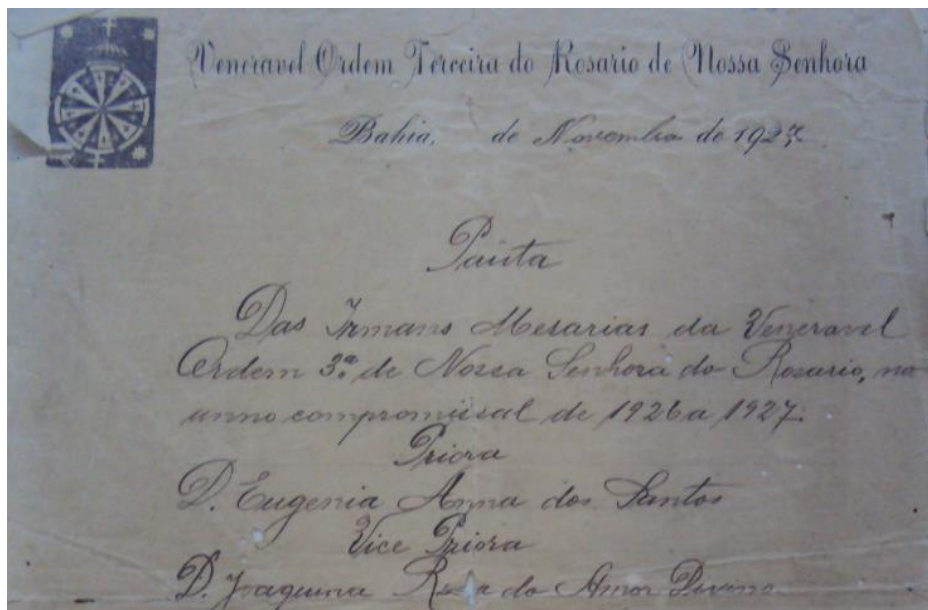 Veneravel Ordem Terceira do Rosario de Nossa Senhora
Bahia, de Novembro de 1927
Pauta
Das Irmans Mesarias da Veneravel
Ordem 3ª de Nossa Senhora do Rosario, no
anno compromissal de 1926 a 1927.
Priora
D. Eugenia Anna dos Santos
Vice Priora
D. Joaquina Rosa do Amor Divino